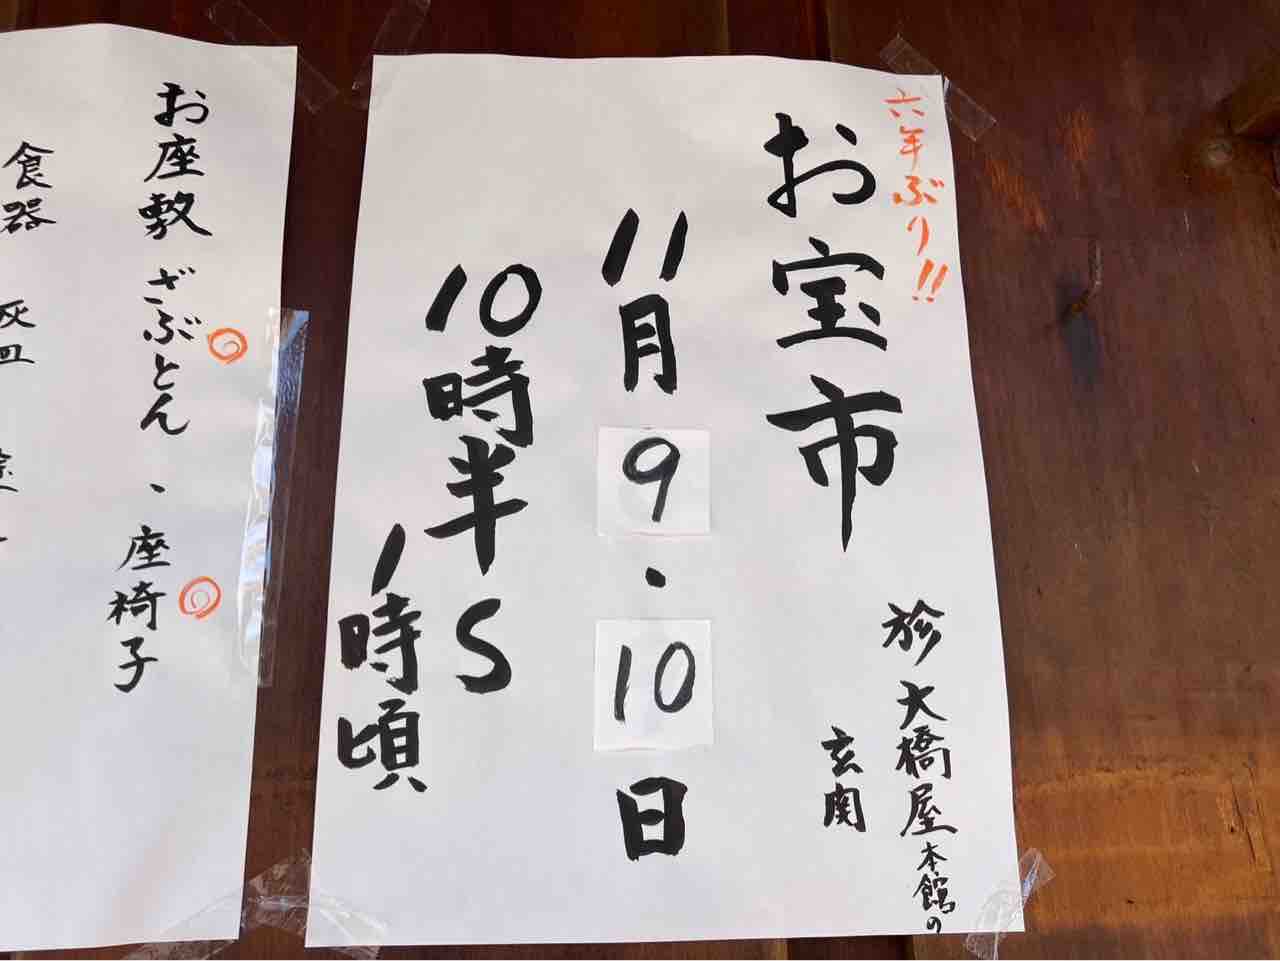 六年ぶり!!
お宝市
於 大橋屋本館の
玄関
11月9・10日
10時半〜
1時頃
お座敷ざぶとん、座椅子
食器 灰皿